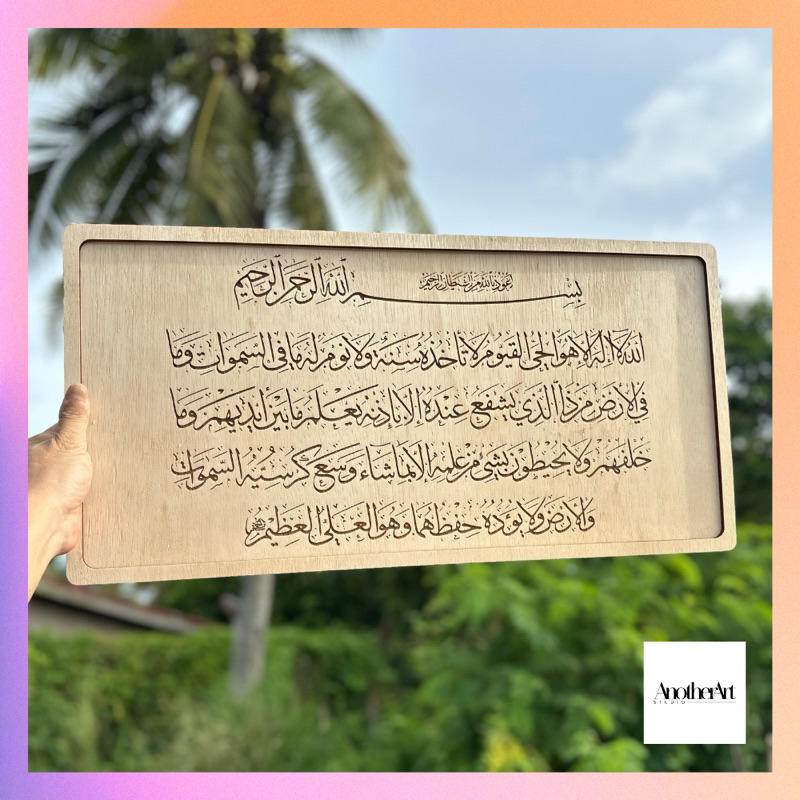 أعوذ بالله من الشيطان الرجيم
بسم الله الرحمن الرحيم
الله لا إله إلا هو الحي القيوم لا تأخذه سنة ولا نوم له ما في السموات وما
في الارض من ذا الذي يشفع عنده إلا باذنه يعلم ما بين أيديهم وما
خلفهم ولا يحيطون بشئ من علمه إلا بما شاء وسع كرسيه السموات
والارض ولا يؤده حفظهما وهو العلي العظيم
AnotherArt
STUDIO